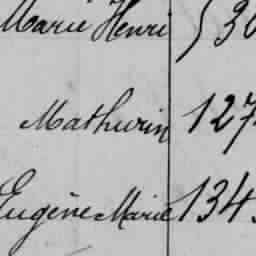 Marie Henri 530
Mathurin 127
Eugène Marie 134